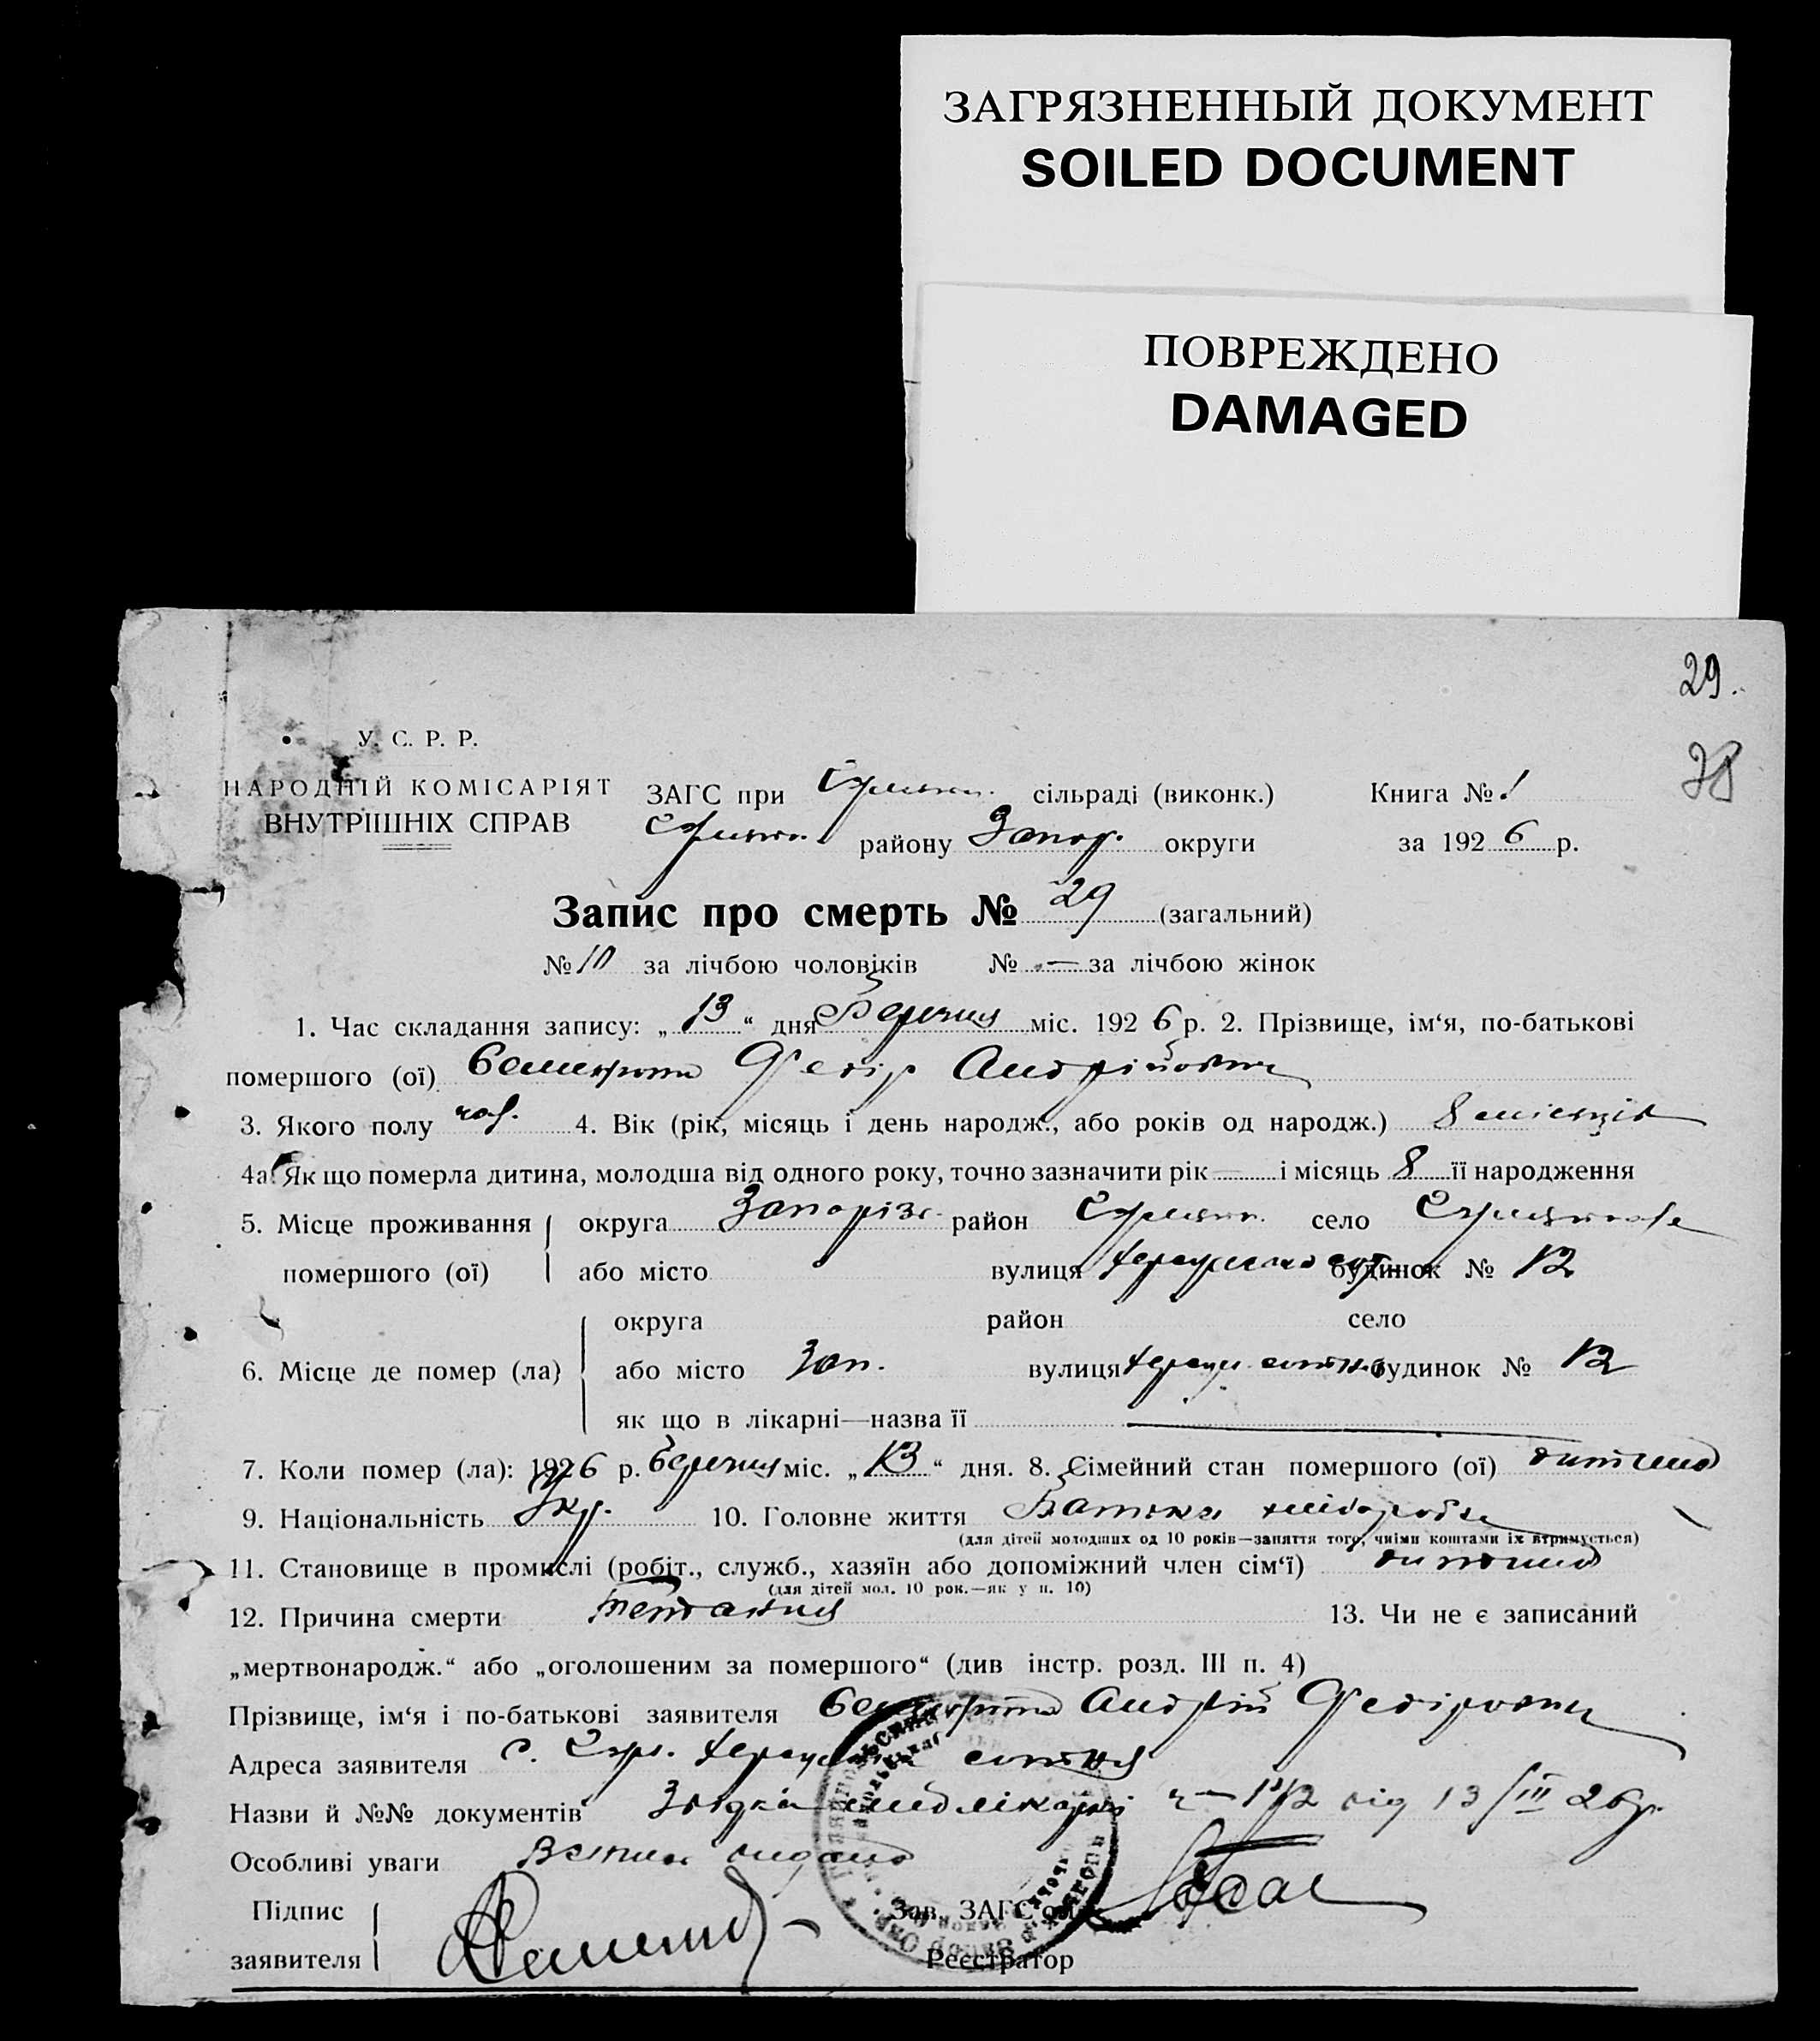 ЗАГРЯЗНЕННЫЙ ДОКУМЕНТ
SOILED DOCUMENT
ПОВРЕЖДЕНО
DAMAGED
29.
38
У. С. Р. Р.
НАРОДНІЙ КОМІСАРІЯТ
ВНУТРІШНІХ СПРАВ
ЗАГС при сільраді (виконк.)
району Запор. округи
Книга № 1
за 1926 р.
Запис про смерть № 29 (загальний)
№ 10 за лічбою чоловіків № — за лічбою жінок
1. Час складання запису: „13“ дня Березня міс. 1926 р. 2. Прізвище, ім‘я, по-батькові
помершого (ої) Федір Андрійович
3. Якого полу чол. 4. Вік (рік, місяць і день народж., або років од народж.) 8 місяців
4а. Як що померла дитина, молодша від одного року, точно зазначити рік — і місяць 8 її народження
5. Місце проживання помершого (ої) округа Запоріз. район село
або місто вулиця будинок № 12
6. Місце де помер (ла) округа район село
або місто Зап. вулиця будинок № 12
як що в лікарні—назва її —
7. Коли помер (ла): 1926 р. березня міс. „13“ дня. 8. Сімейний стан помершого (ої) дитина
9. Національність Укр. 10. Головне життя Батька хліборобс
(для дітей молодших од 10 років—заняття того, чиїми коштами їх втримується)
11. Становище в промислі (робіт., служб., хазяїн або допоміжний член сім‘ї) дитина
(для дітей мол. 10 рок.—як у п. 10)
12. Причина смерти Тетания 13. Чи не є записаний
„мертвонародж.“ або „оголошеним за помершого“ (див інстр. розд. III п. 4)
Прізвище, ім‘я і по-батькові заявителя Андрій Федірович
Адреса заявителя с. сотня
Назви й №№ документів від 13/III 26 р.
Особливі уваги видано
Підпис заявителя
Зав. ЗАГС‘ом
Реєстратор